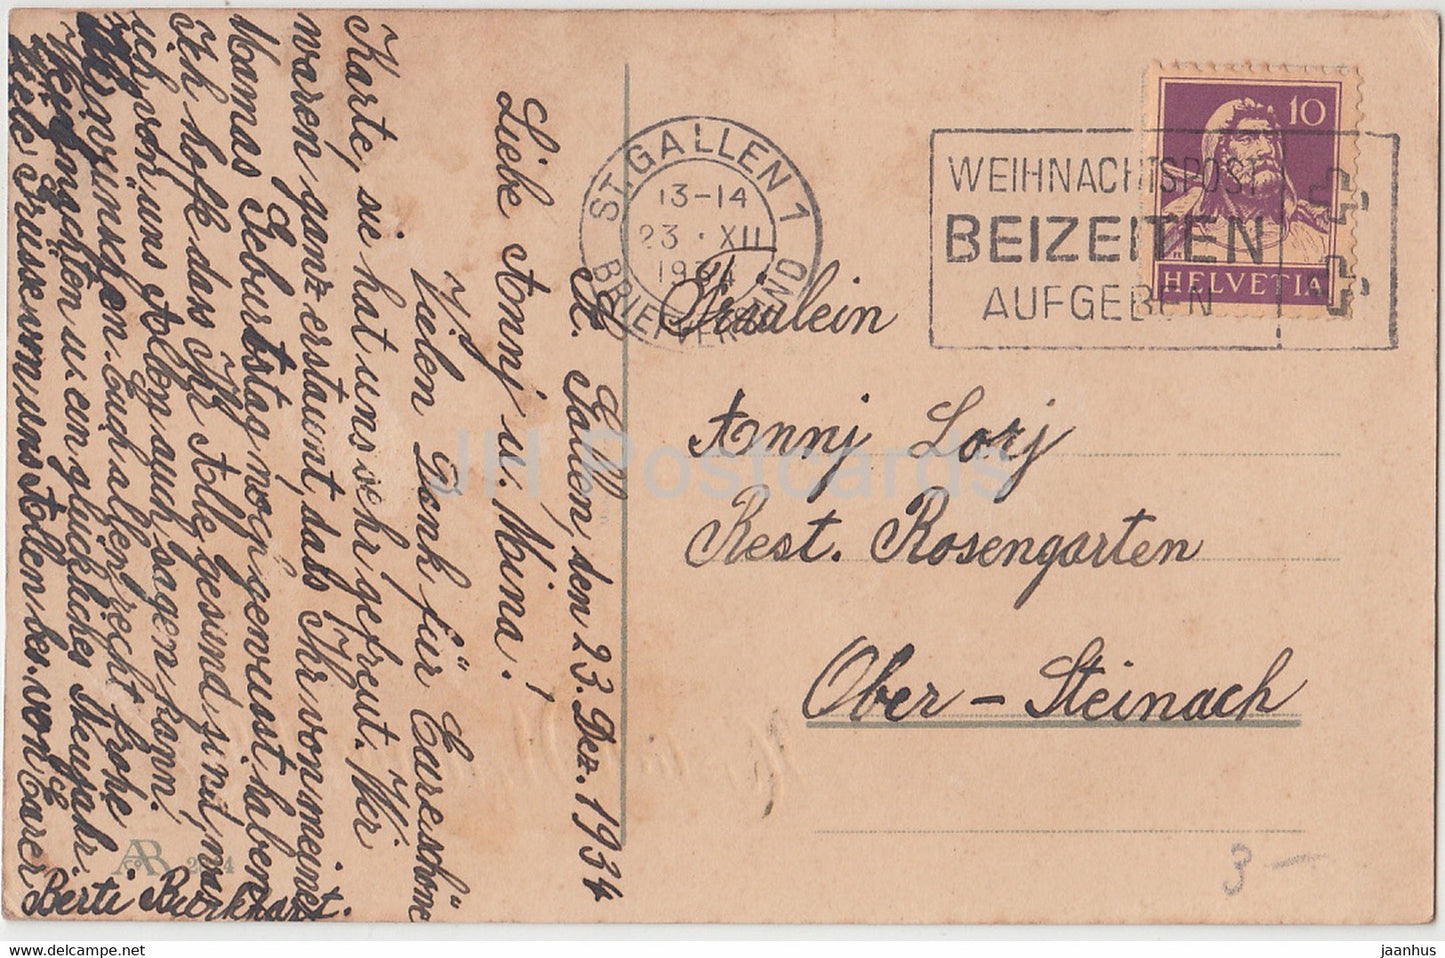 St. Gallen, den 23. Dez. 1934
Liebe Annj u. Mina!
Vielen Dank für Eure schöne
Karte, sie hat uns sehr gefreut. Wir
waren ganz erstaunt, dass Ihr von meiner
Mamas Geburtstag noch gewusst haben.
Ich hoffe dass Ihr Alle gesund sind, was
ich von uns Allen auch sagen kann,
Wir wünschen Euch allen recht frohe
Weihnachten u. ein glückliches Neujahr.
Viele Grüsse von uns Allen bes. von Eurer
Berti Burkhart.
ST. GALLEN 1
13-14
23. XII
1934
BRIEFVERSAND
WEIHNACHTSPOST
BEIZEITEN
AUFGEBEN
10
HELVETIA
Fräulein
Annj Lorj
Rest. Rosengarten
Ober-Steinach
3 –
JH Postcards
www.delcampe.net
jaanhus